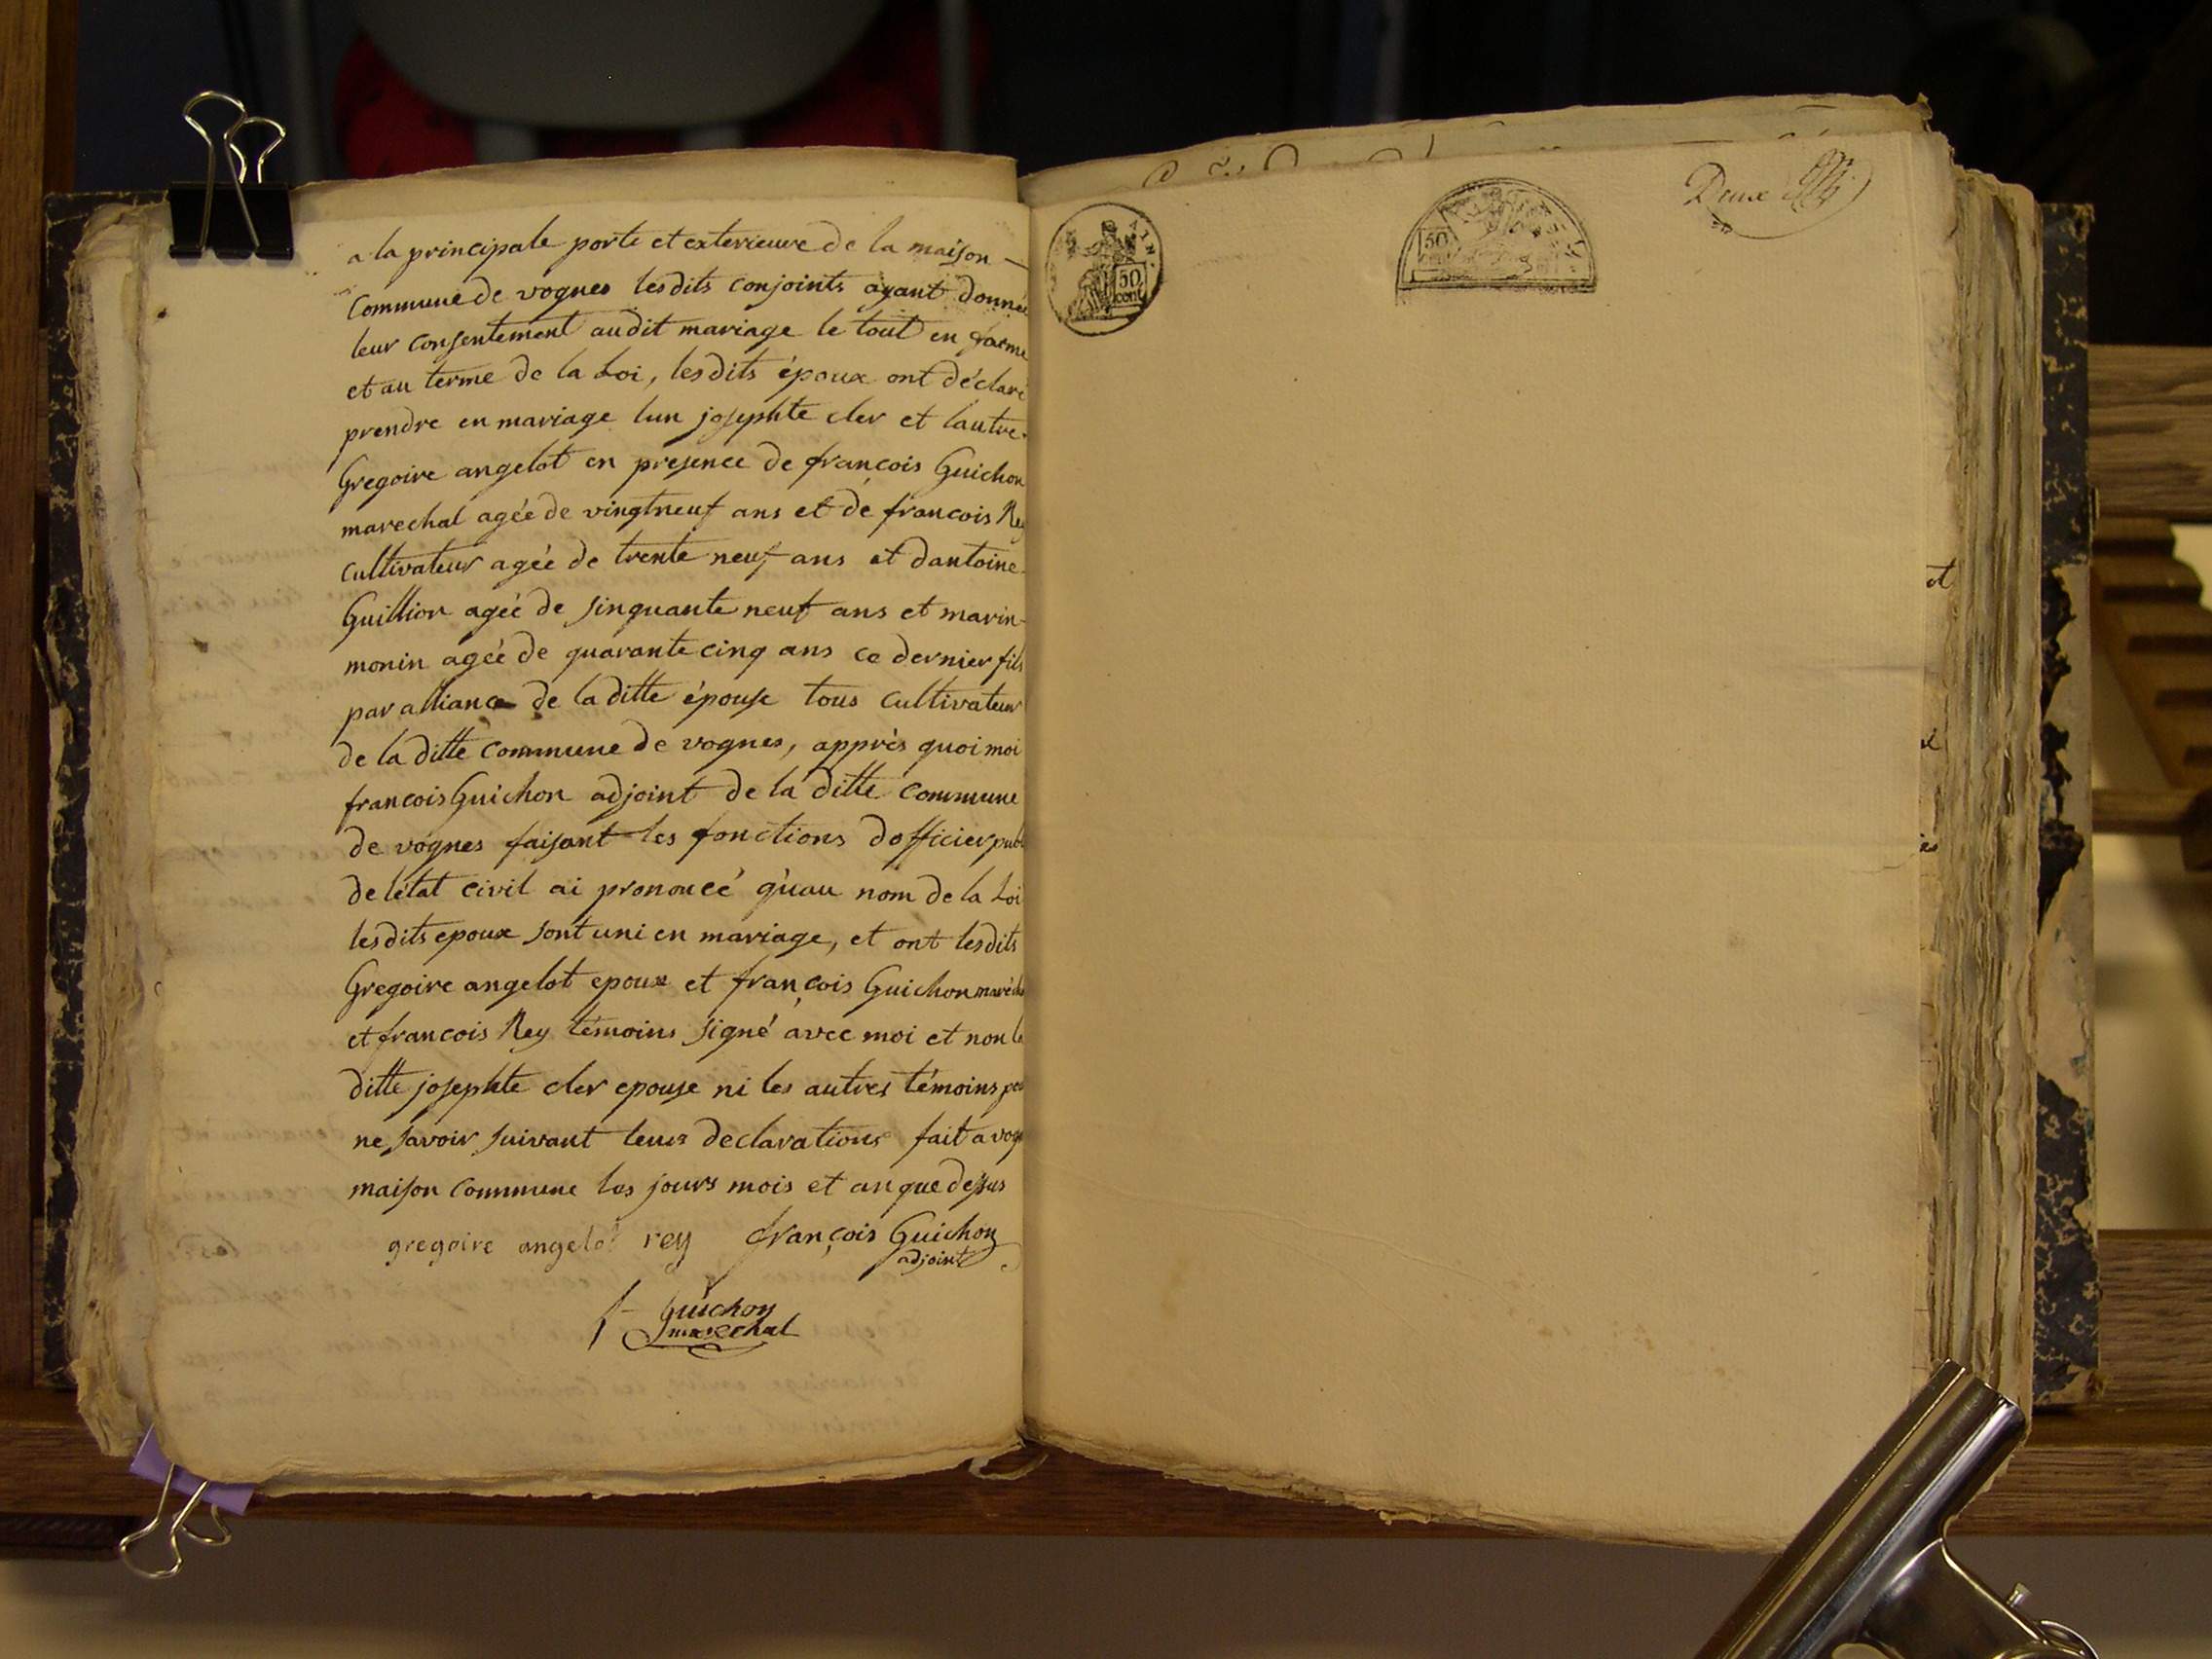 a la principale porte et exterieure de la maison —
Commune de vognes lesdits conjoints ayant donnée
leur consentement audit mariage le tout en forme
et au terme de la Loi, lesdits époux ont déclaré
prendre en mariage lun josephte cler et lautre
Gregoire angelot en presence de françois Guichon
marechal agée de vingtneuf ans et de francois Rey
cultivateur agée de trente neuf ans et dantoine
Guillion agée de sinquante neuf ans et marin
monin agée de quarante cinq ans ce dernier fils
par alliance de la ditte épouse tous cultivateur
de la ditte Commune de vognes, apprès quoi moi
francois Guichon adjoint de la ditte Commune
de vognes faisant les fonctions dofficier publ
de létat civil ai prononcé quau nom de la Loi
lesdits epoux sont uni en mariage, et ont lesdits
Gregoire angelot epoux et françois Guichon maréch
et francois Rey témoins signé avec moi et non la
ditte josephte cler epouse ni les autres témoins pour
ne savoir suivant leurs declarations fait a vog
maison Commune les jours mois et an que dessus
gregoire angelot rey françois Guichon
adjoint
f Guichon
marechal
AIN.
50
cent
50
Deux
et